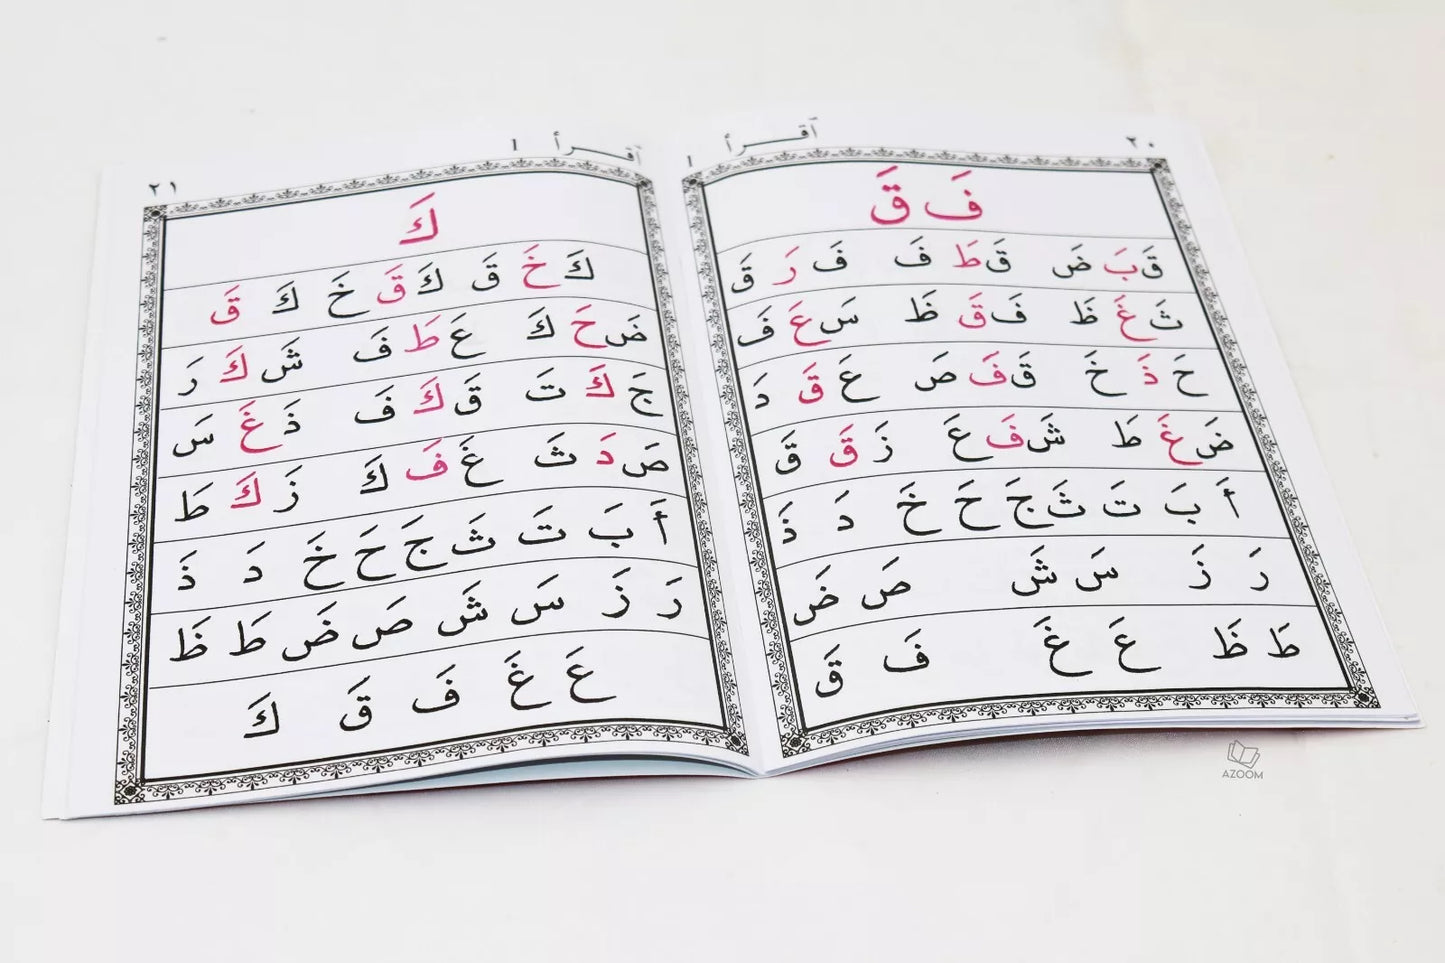 ٢٠
اقـــرأ 1
فَ قَ
قَ بَ ضَ قَ طَ فَ فَ رَ قَ
ثَ غَ ظَ فَ قَ ظَ سَ عَ فَ
حَ ذَ خَ قَ فَ صَ عَ قَ دَ
ضَ غَ طَ شَ فَ عَ زَ قَ قَ
أَ بَ تَ ثَ جَ حَ خَ دَ ذَ
رَ زَ سَ شَ صَ ضَ
طَ ظَ عَ غَ فَ قَ
اقـــرأ 1
٢١
كَ
كَ خَ قَ كَ قَ خَ كَ قَ
ضَ حَ كَ عَ طَ فَ شَ كَ رَ
جَ كَ تَ قَ كَ فَ ذَ غَ سَ
صَ دَ ثَ غَ فَ كَ زَ كَ طَ
أَ بَ تَ ثَ جَ حَ خَ دَ ذَ
رَ زَ سَ شَ صَ ضَ طَ ظَ
عَ غَ فَ قَ كَ
AZOOM